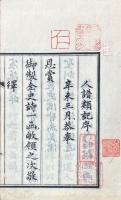 人譜類記序
辛亥三月恭奉
恩賞
御製全史詩一函敬領之次敬
繹